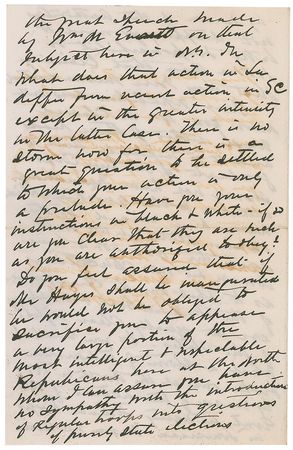 the great speech made
by Wm M Evarts on that
subject here in NY. In
what does that action in La
differ from recent action in SC
except in the greater intensity
in the latter case. There is no
storm now for there is a
great question to be settled
to which your action is only
a prelude. Have you your
instructions in black & white - if so
are you clear that they are such
as you are authorized to obey?
Do you feel assured that if
Mr Hayes shall be inaugurated
he would not be obliged to
sacrifice you to appease
a very large portion of the
most intelligent & respectable
Republicans here at the North
whom I can assure you have
no sympathy with the introduction
of Regular troops into questions
of purely state elections